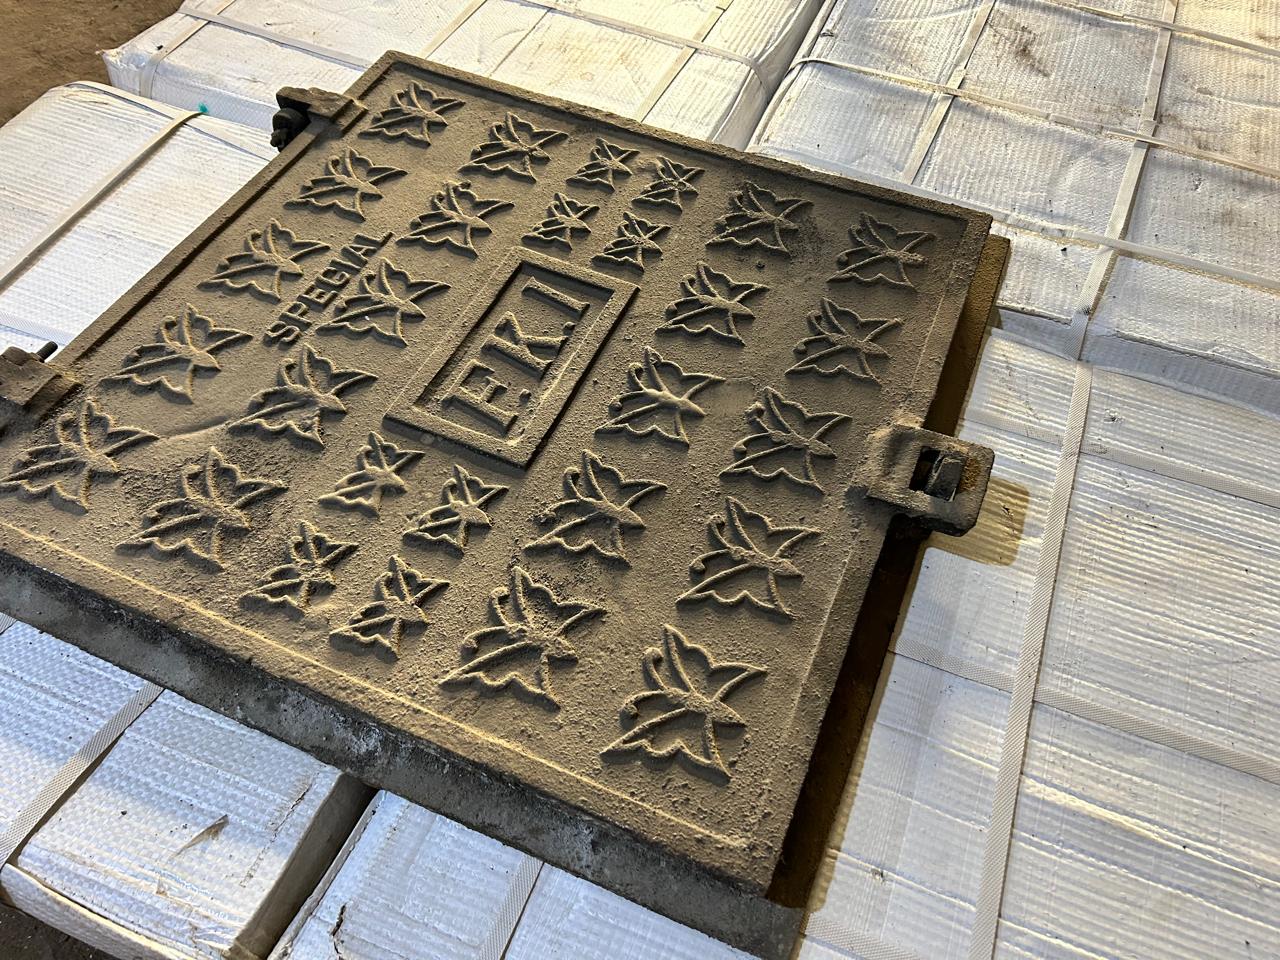 SPECIAL
E.K.I